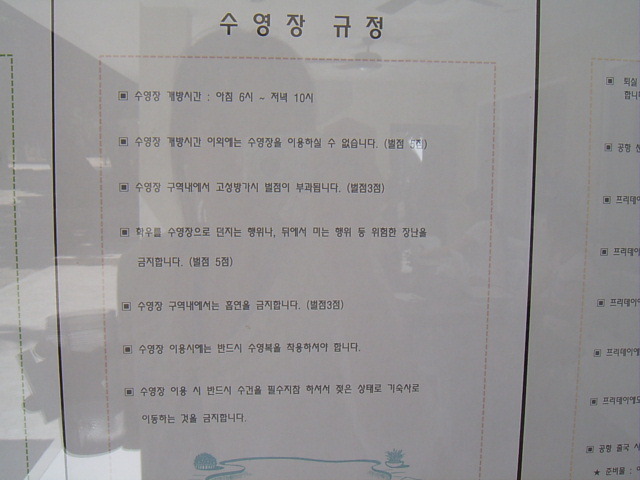 수영장 규정
▣ 수영장 개방시간 : 아침 6시 ~ 저녁 10시
▣ 수영장 개방시간 이외에는 수영장을 이용하실 수 없습니다. (벌점 5점)
▣ 수영장 구역내에서 고성방가시 벌점이 부과됩니다. (벌점3점)
▣ 학우를 수영장으로 던지는 행위나, 뒤에서 미는 행위 등 위험한 장난을
금지합니다. (벌점 5점)
▣ 수영장 구역내에서는 흡연을 금지합니다. (벌점3점)
▣ 수영장 이용시에는 반드시 수영복을 착용하셔야 합니다.
▣ 수영장 이용 시 반드시 수건을 필수지참 하셔서 젖은 상태로 기숙사로
이동하는 것을 금지합니다.
▣ 퇴실
▣ 공항
▣ 프리데이
▣ 프리데이
▣ 프리데이
▣ 프리데이에
▣ 프리데이에도
▣ 공항 출국
★ 준비물 :